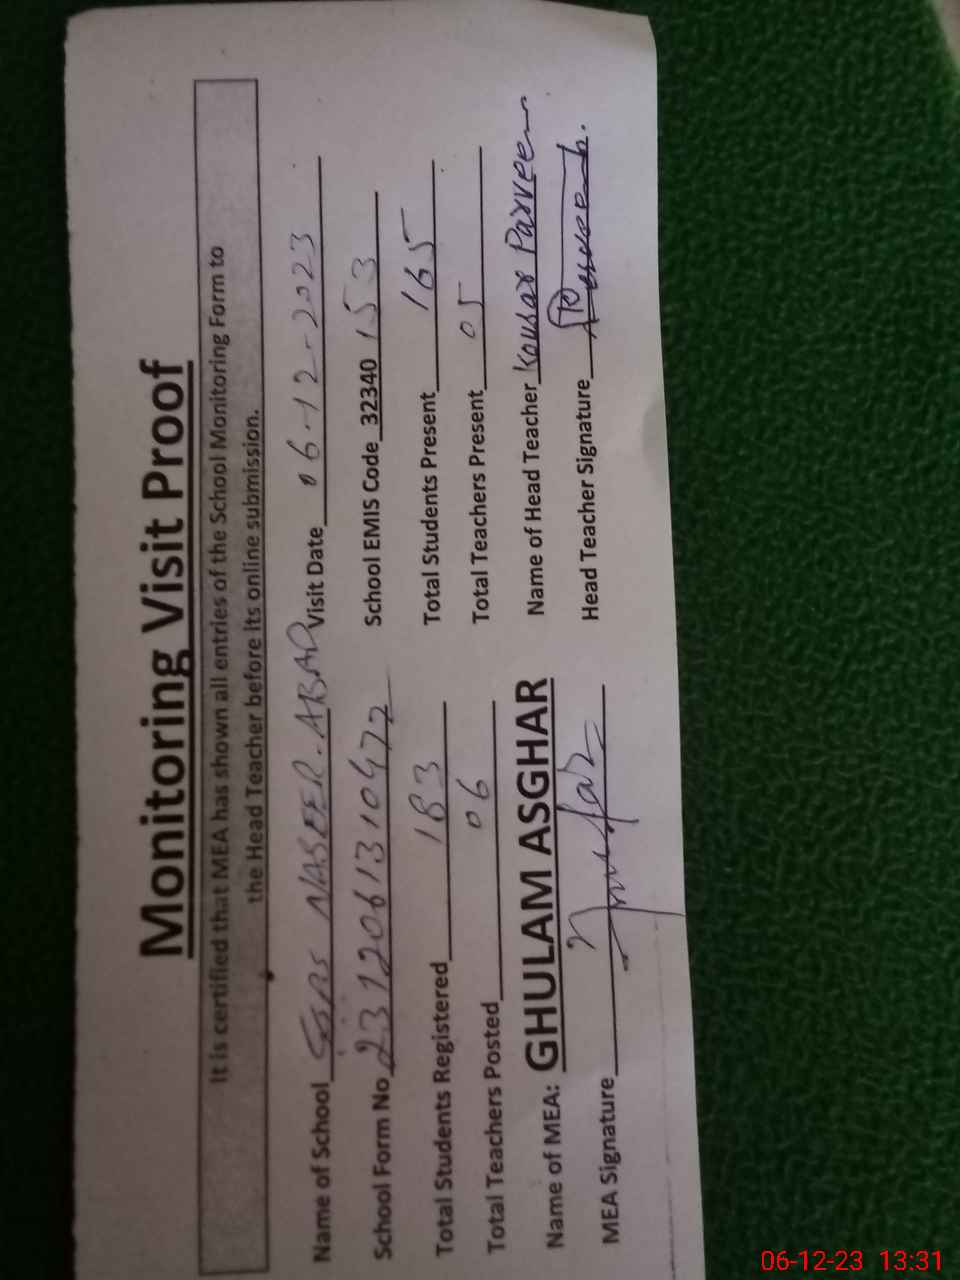 Monitoring Visit Proof
It is certified that MEA has shown all entries of the School Monitoring Form to
the Head Teacher before its online submission.
Name of School NASEER.ABAD Visit Date 06-12-2023
School Form No 2312061310472 School EMIS Code 32340 153
Total Students Registered 183 Total Students Present 165
Total Teachers Posted 06 Total Teachers Present 05
Name of MEA: GHULAM ASGHAR Name of Head Teacher Kousar Parveen
MEA Signature Head Teacher Signature
06-12-23 13:31